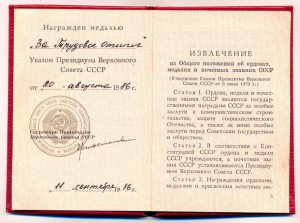 Награжден медалью
"За Трудовое отличие"
Указом Президиума Верховного
Совета СССР
от 20 августа 1986 г.
Секретарь Президиума
Верховного Совета СССР
11 сентября 86 г.
ИЗВЛЕЧЕНИЕ
из Общего положения об орденах,
медалях и почетных званиях СССР
(Утверждено Указом Президиума Верховного
Совета СССР от 3 июля 1979 г.)
Статья 1. Ордена, медали и почет-
ные звания СССР являются
государственными наградами СССР за особые
заслуги в коммунистическом строи-
тельстве, защите социалистического
Отечества, а также за иные особые
заслуги перед Советским государством
и обществом.
Статья 2. В соответствии с Кон-
ституцией СССР ордена и медали
СССР учреждаются, а почетные зва-
ния устанавливаются Президиумом
Верховного Совета СССР.
Статья 3. Награждения орденами,
медалями и присвоения почетных зва-